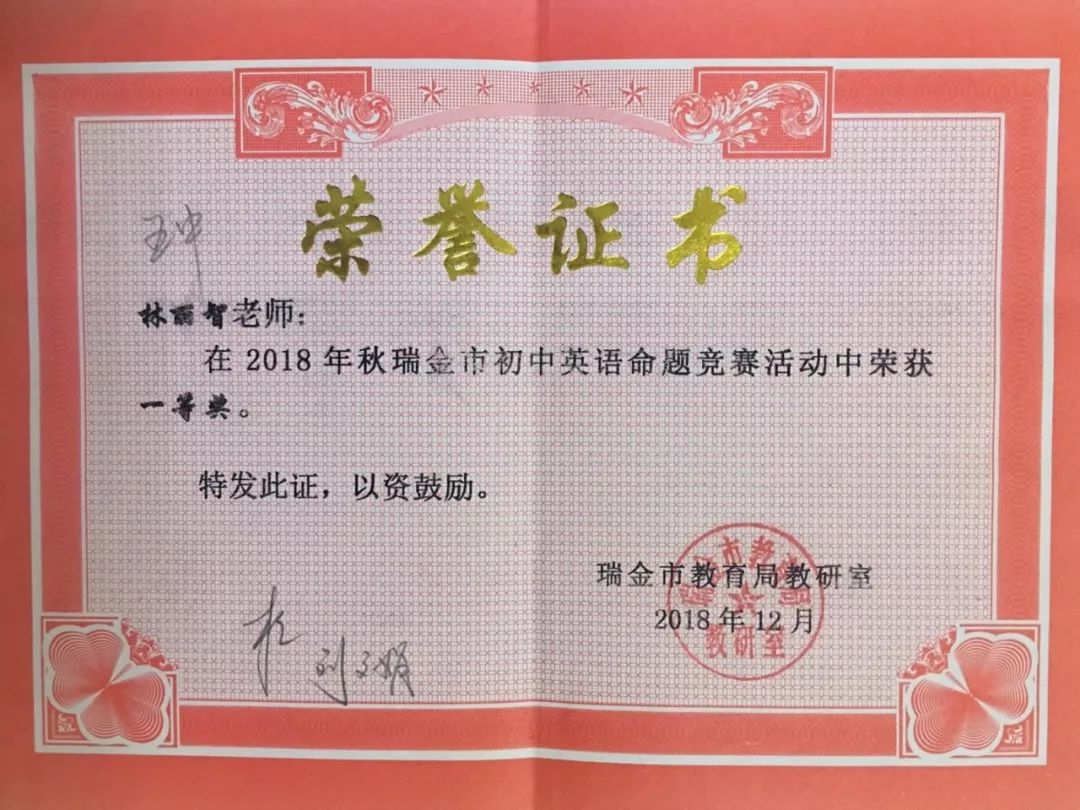 荣誉证书
林丽智老师：
在2018年秋瑞金市初中英语命题竞赛活动中荣获
一等奖。
特发此证，以资鼓励。
瑞金市教育局教研室
2018年12月
教研室